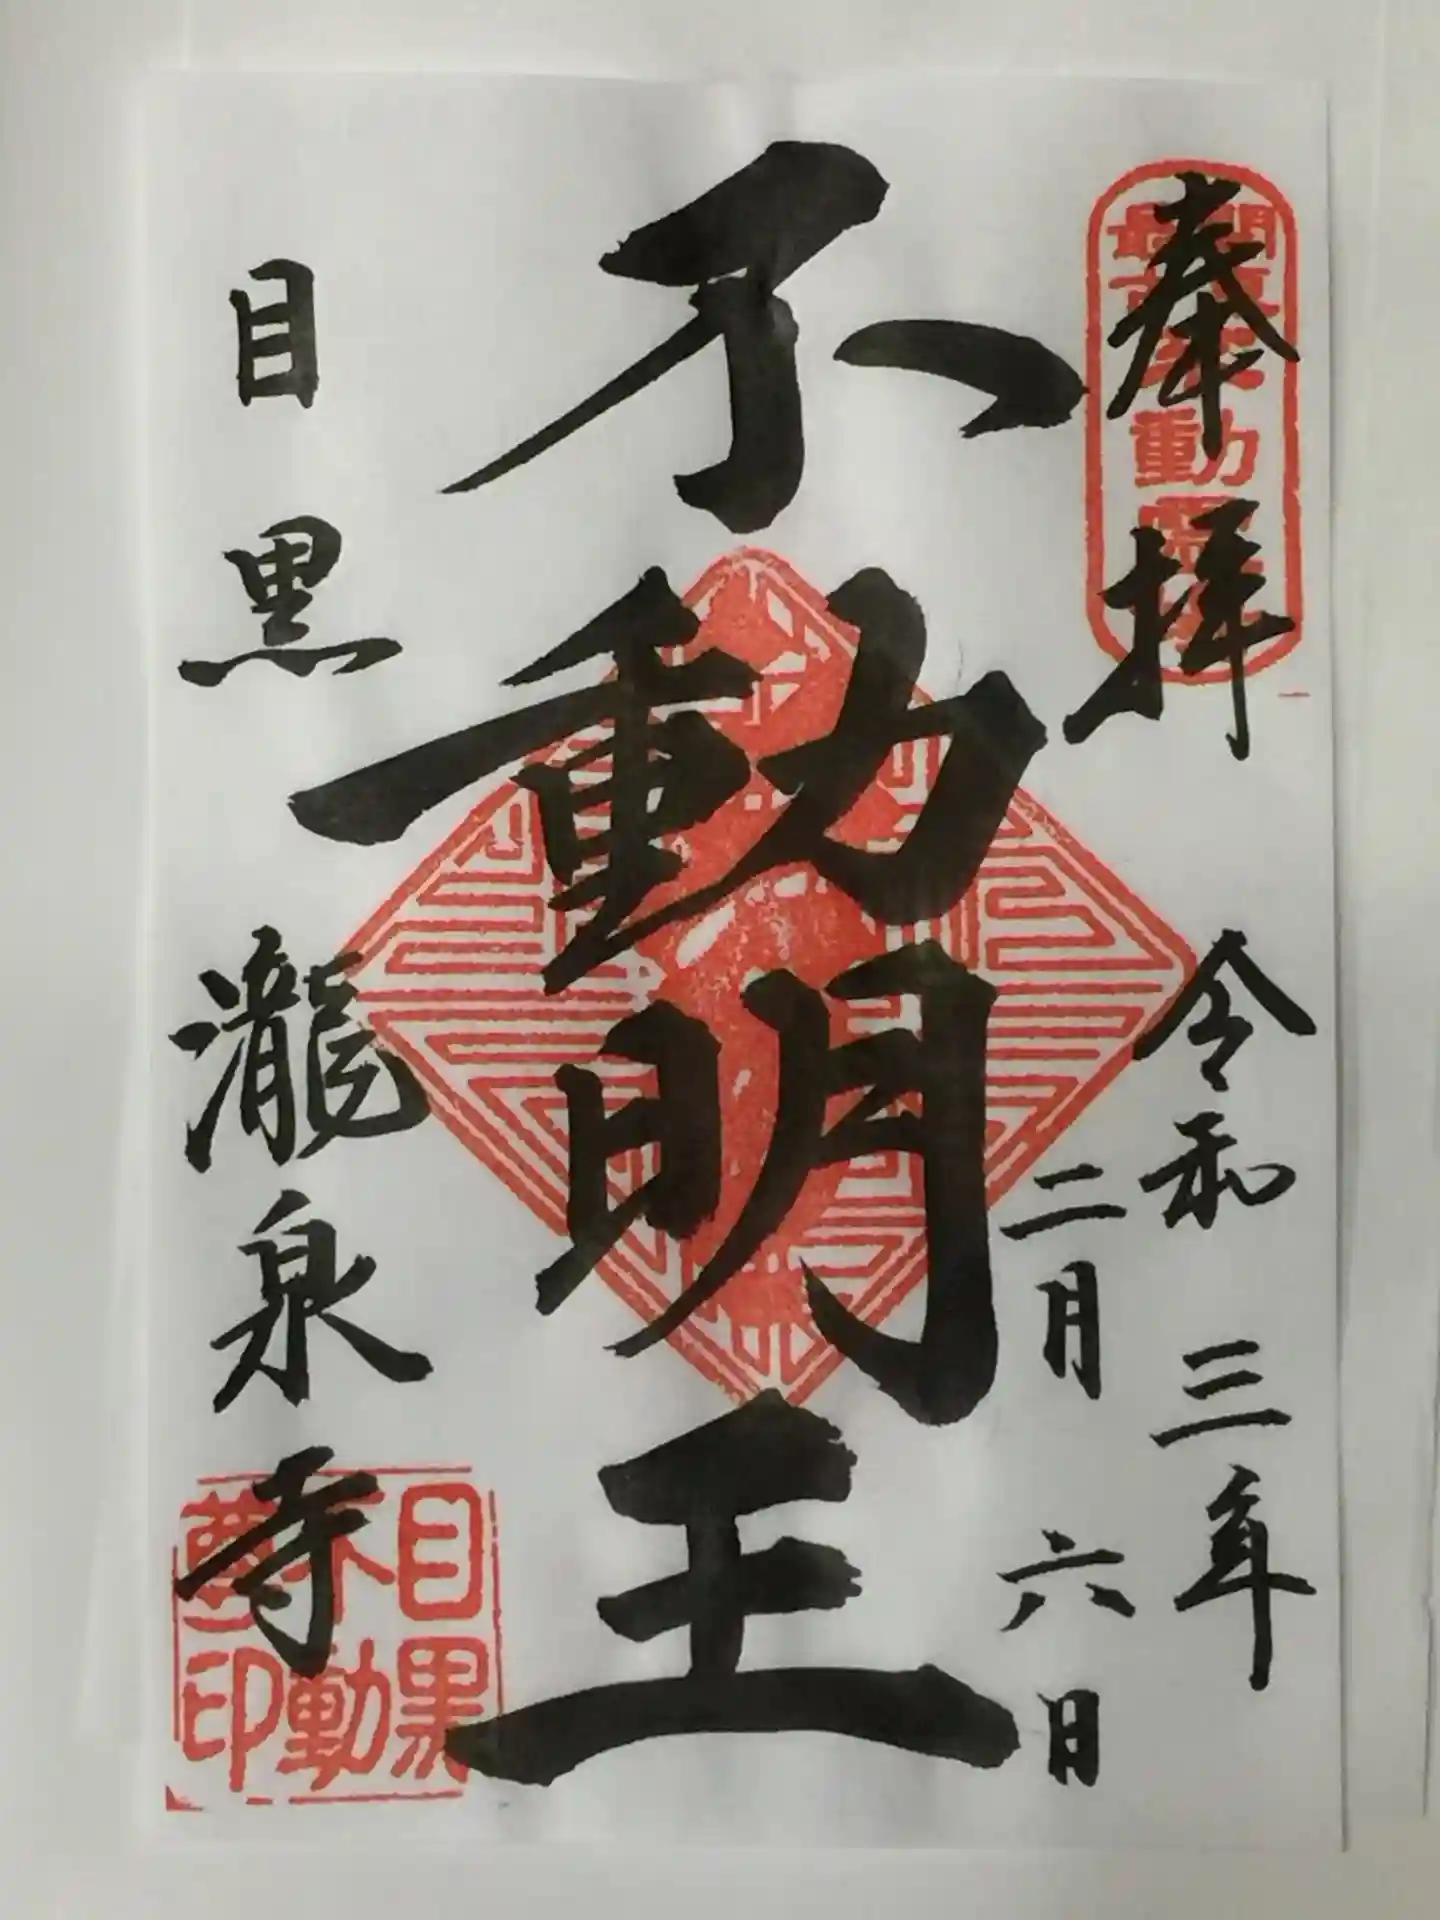 奉拝
令和三年
二月六日
不動明王
目黒
瀧泉寺
目黒
不動
尊印